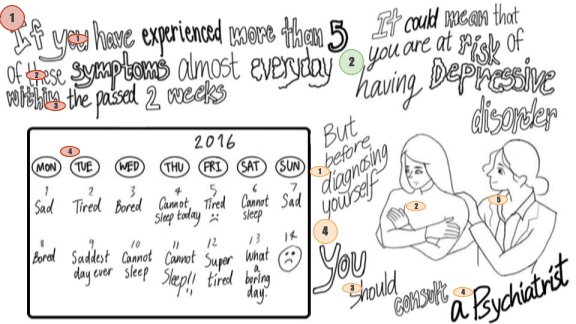 1
If you have experienced more than 5
1
of these symptoms almost everyday
2
within the passed 2 weeks
3
2
It could mean that
you are at risk of
having Depressive
disorder
2016
4
MON TUE WED THU FRI SAT SUN
1 2 3 4 5 6 7
Sad Tired Bored Cannot sleep today Tired :( Cannot sleep Sad
8 9 10 11 12 13 14
Bored Saddest day ever Cannot sleep Cannot Sleep!! Super tired What a boring day.
But
before
1
diagnosing
yourself
2
5
4
You
3
should
consult
4
a Psychiatrist